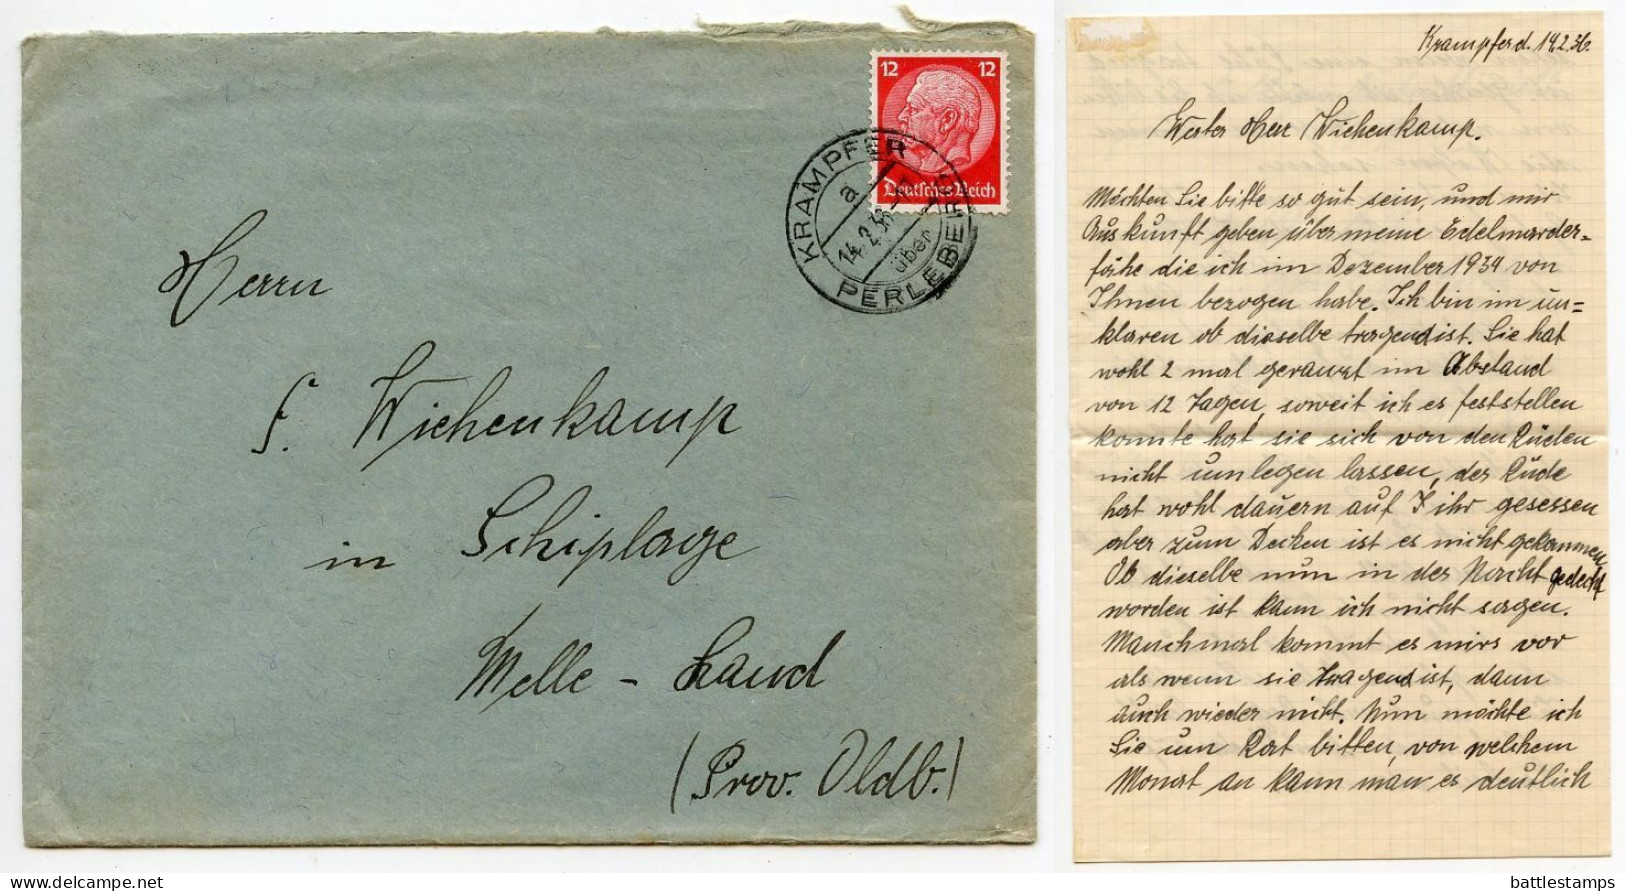 12 12
Deutsches Reich
KRAMPFER
a
14.2.36
über
PERLEBERG
Herrn
F. Wiehenkamp
in Schiplage
Melle - Land
(Prov. Oldb.)
Krampfer d. 14.2.36.
Werter Herr Wiehenkamp.
Möchten Sie bitte so gut sein, und mir
Auskunft geben über meine Edelmarder=
fähe die ich im Dezember 1934 von
Ihnen bezogen habe. Ich bin im un=
klaren ob dieselbe tragend ist. Sie hat
wohl 2 mal geranzt im Abstand
von 12 Tagen, soweit ich es feststellen
konnte hat sie sich von den Rüden
nicht umlegen lassen, der Rüde
hat wohl dauern auf ihr gesessen
aber zum Decken ist es nicht gekommen
Ob dieselbe nun in der Nacht gedeckt
worden ist kann ich nicht sagen.
Manchmal kommt es mirs vor
als wenn sie tragend ist, dann
auch wieder nicht. Nun möchte ich
Sie um Rat bitten, von welchem
Monat an kann man es deutlich
battlestamps